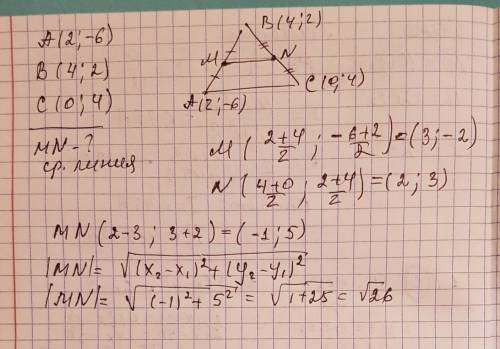 A(2;-6)
B(4;2)
C(0;4)
MN-?
ср. линия
B(4;2)
M
N
A(2;-6)
C(0;4)
M(2+4/2; -6+2/2)=(3;-2)
N(4+0/2; 2+4/2)=(2;3)
MN(2-3; 3+2)=(-1;5)
|MN|=√(x₂-x₁)²+(y₂-y₁)²
|MN|=√(-1)²+5²=√1+25=√26